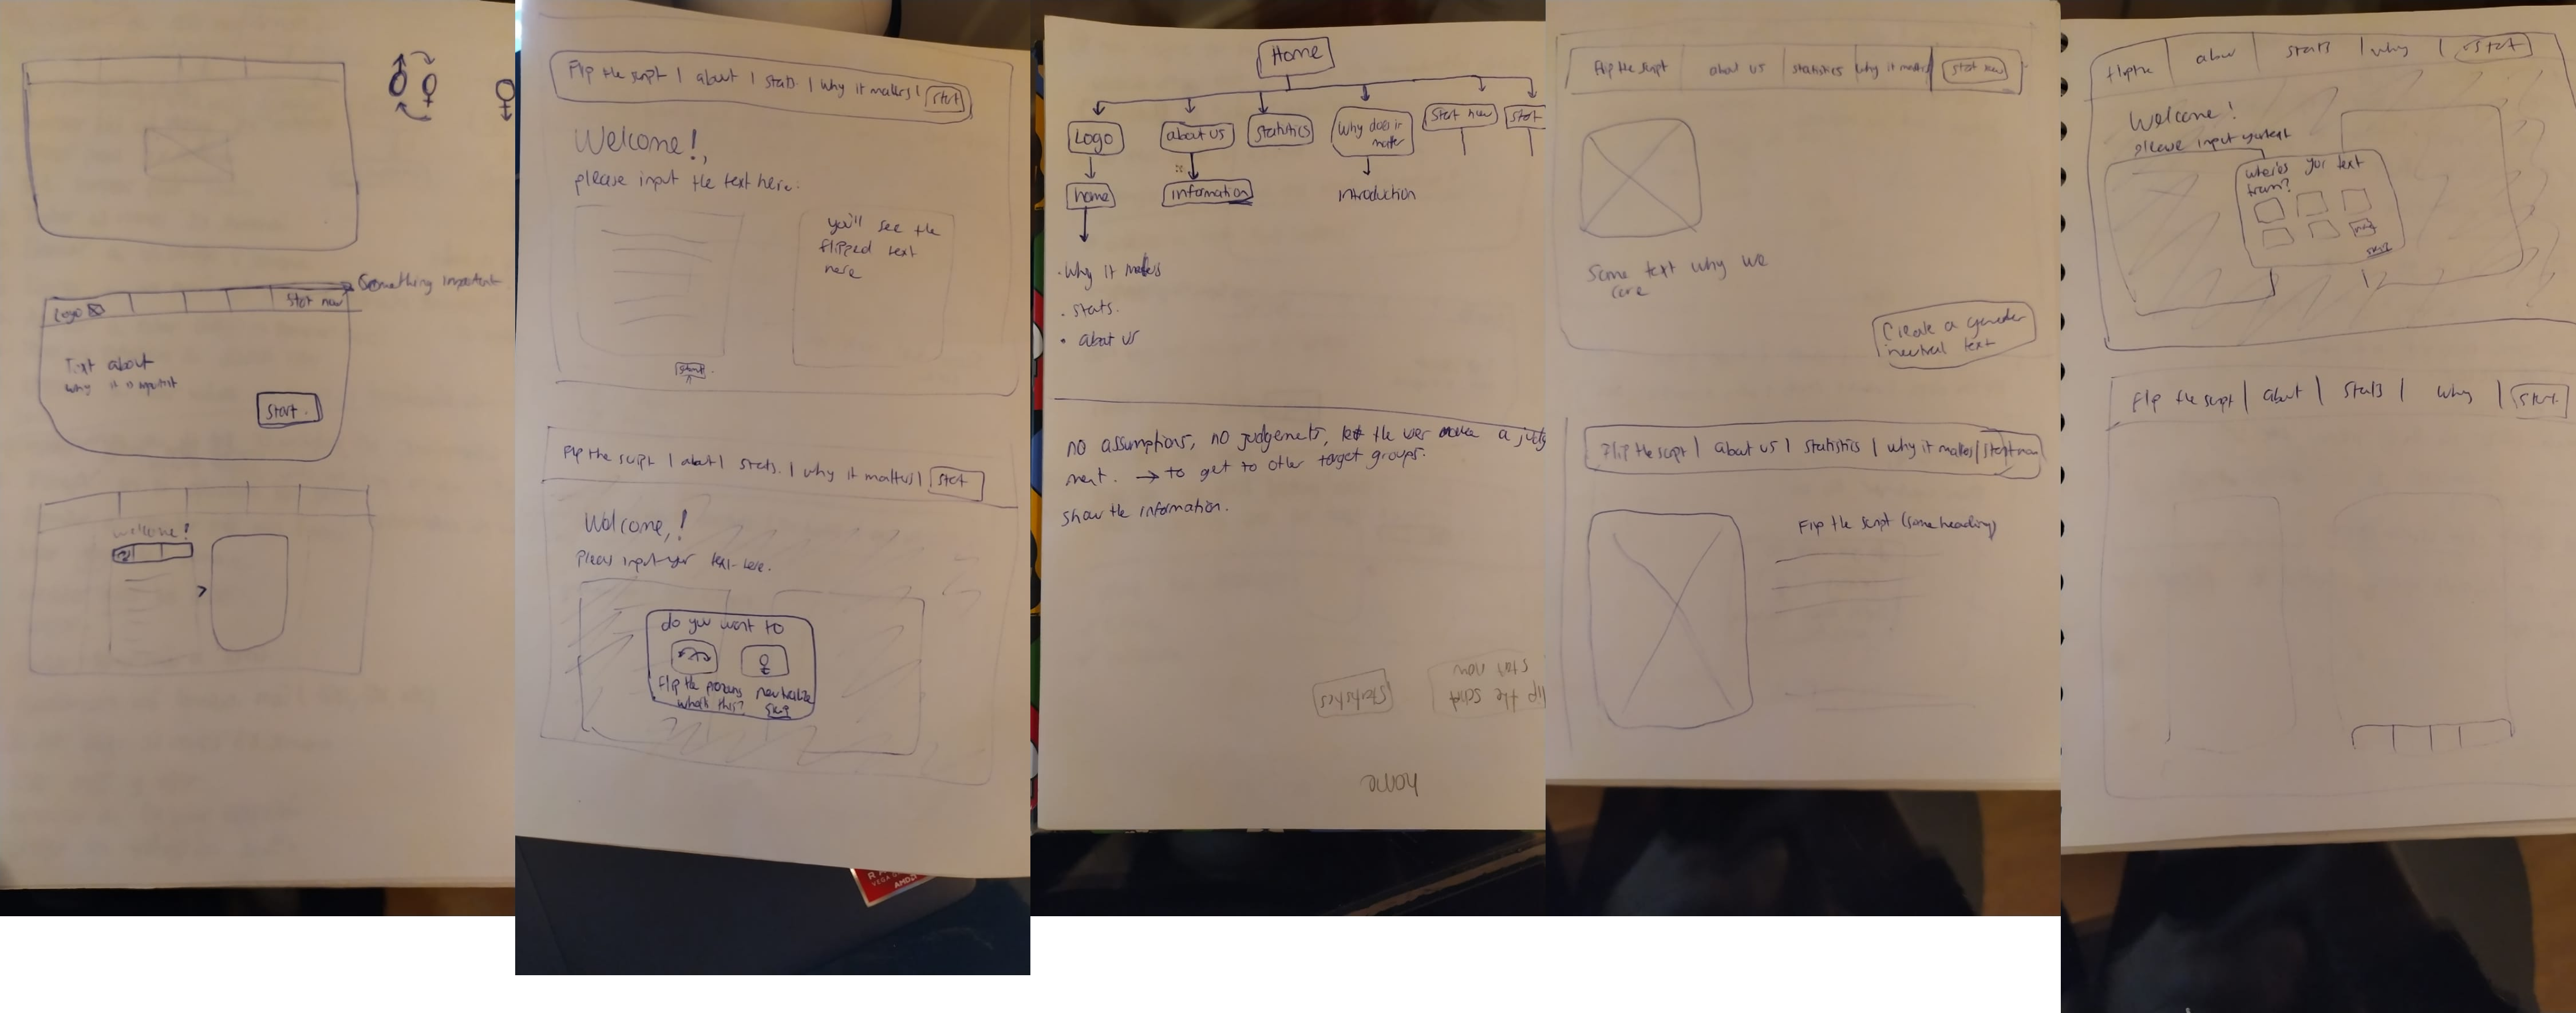 Something important
Logo
Start now
Text about
why it is important
Start.
welcome!
Flip the script | about | stats. | why it matters! start
Welcome!,
please input the text here.
you'll see the
flipped text
here
Flip the script | about | stats. | why it matters | start
Welcome,!
Please input your text here.
do you want to
flip the pronouns neutralize
what's this? skip
RA
VEGA
AMD
Home
Logo
about us
statistics
Why does it
matter
Start now
start
home
information
introduction
· Why it matters
· stats.
· about us
no assumptions, no judgements, let the user make a judg
ment. → to get to other target groups.
show the information.
start now
flip the script
statistics
home
Flip the script
about us
statistics
why it matters
start now
Some text why we
care
Create a gender
neutral text
Flip the script | about us | statistics | why it matters | start now
Flip the script (some heading)
flip the
about
stats | why | start
Welcome!
please input your text
where's your text
from?
skip
Flip the script | about | stats | why | start